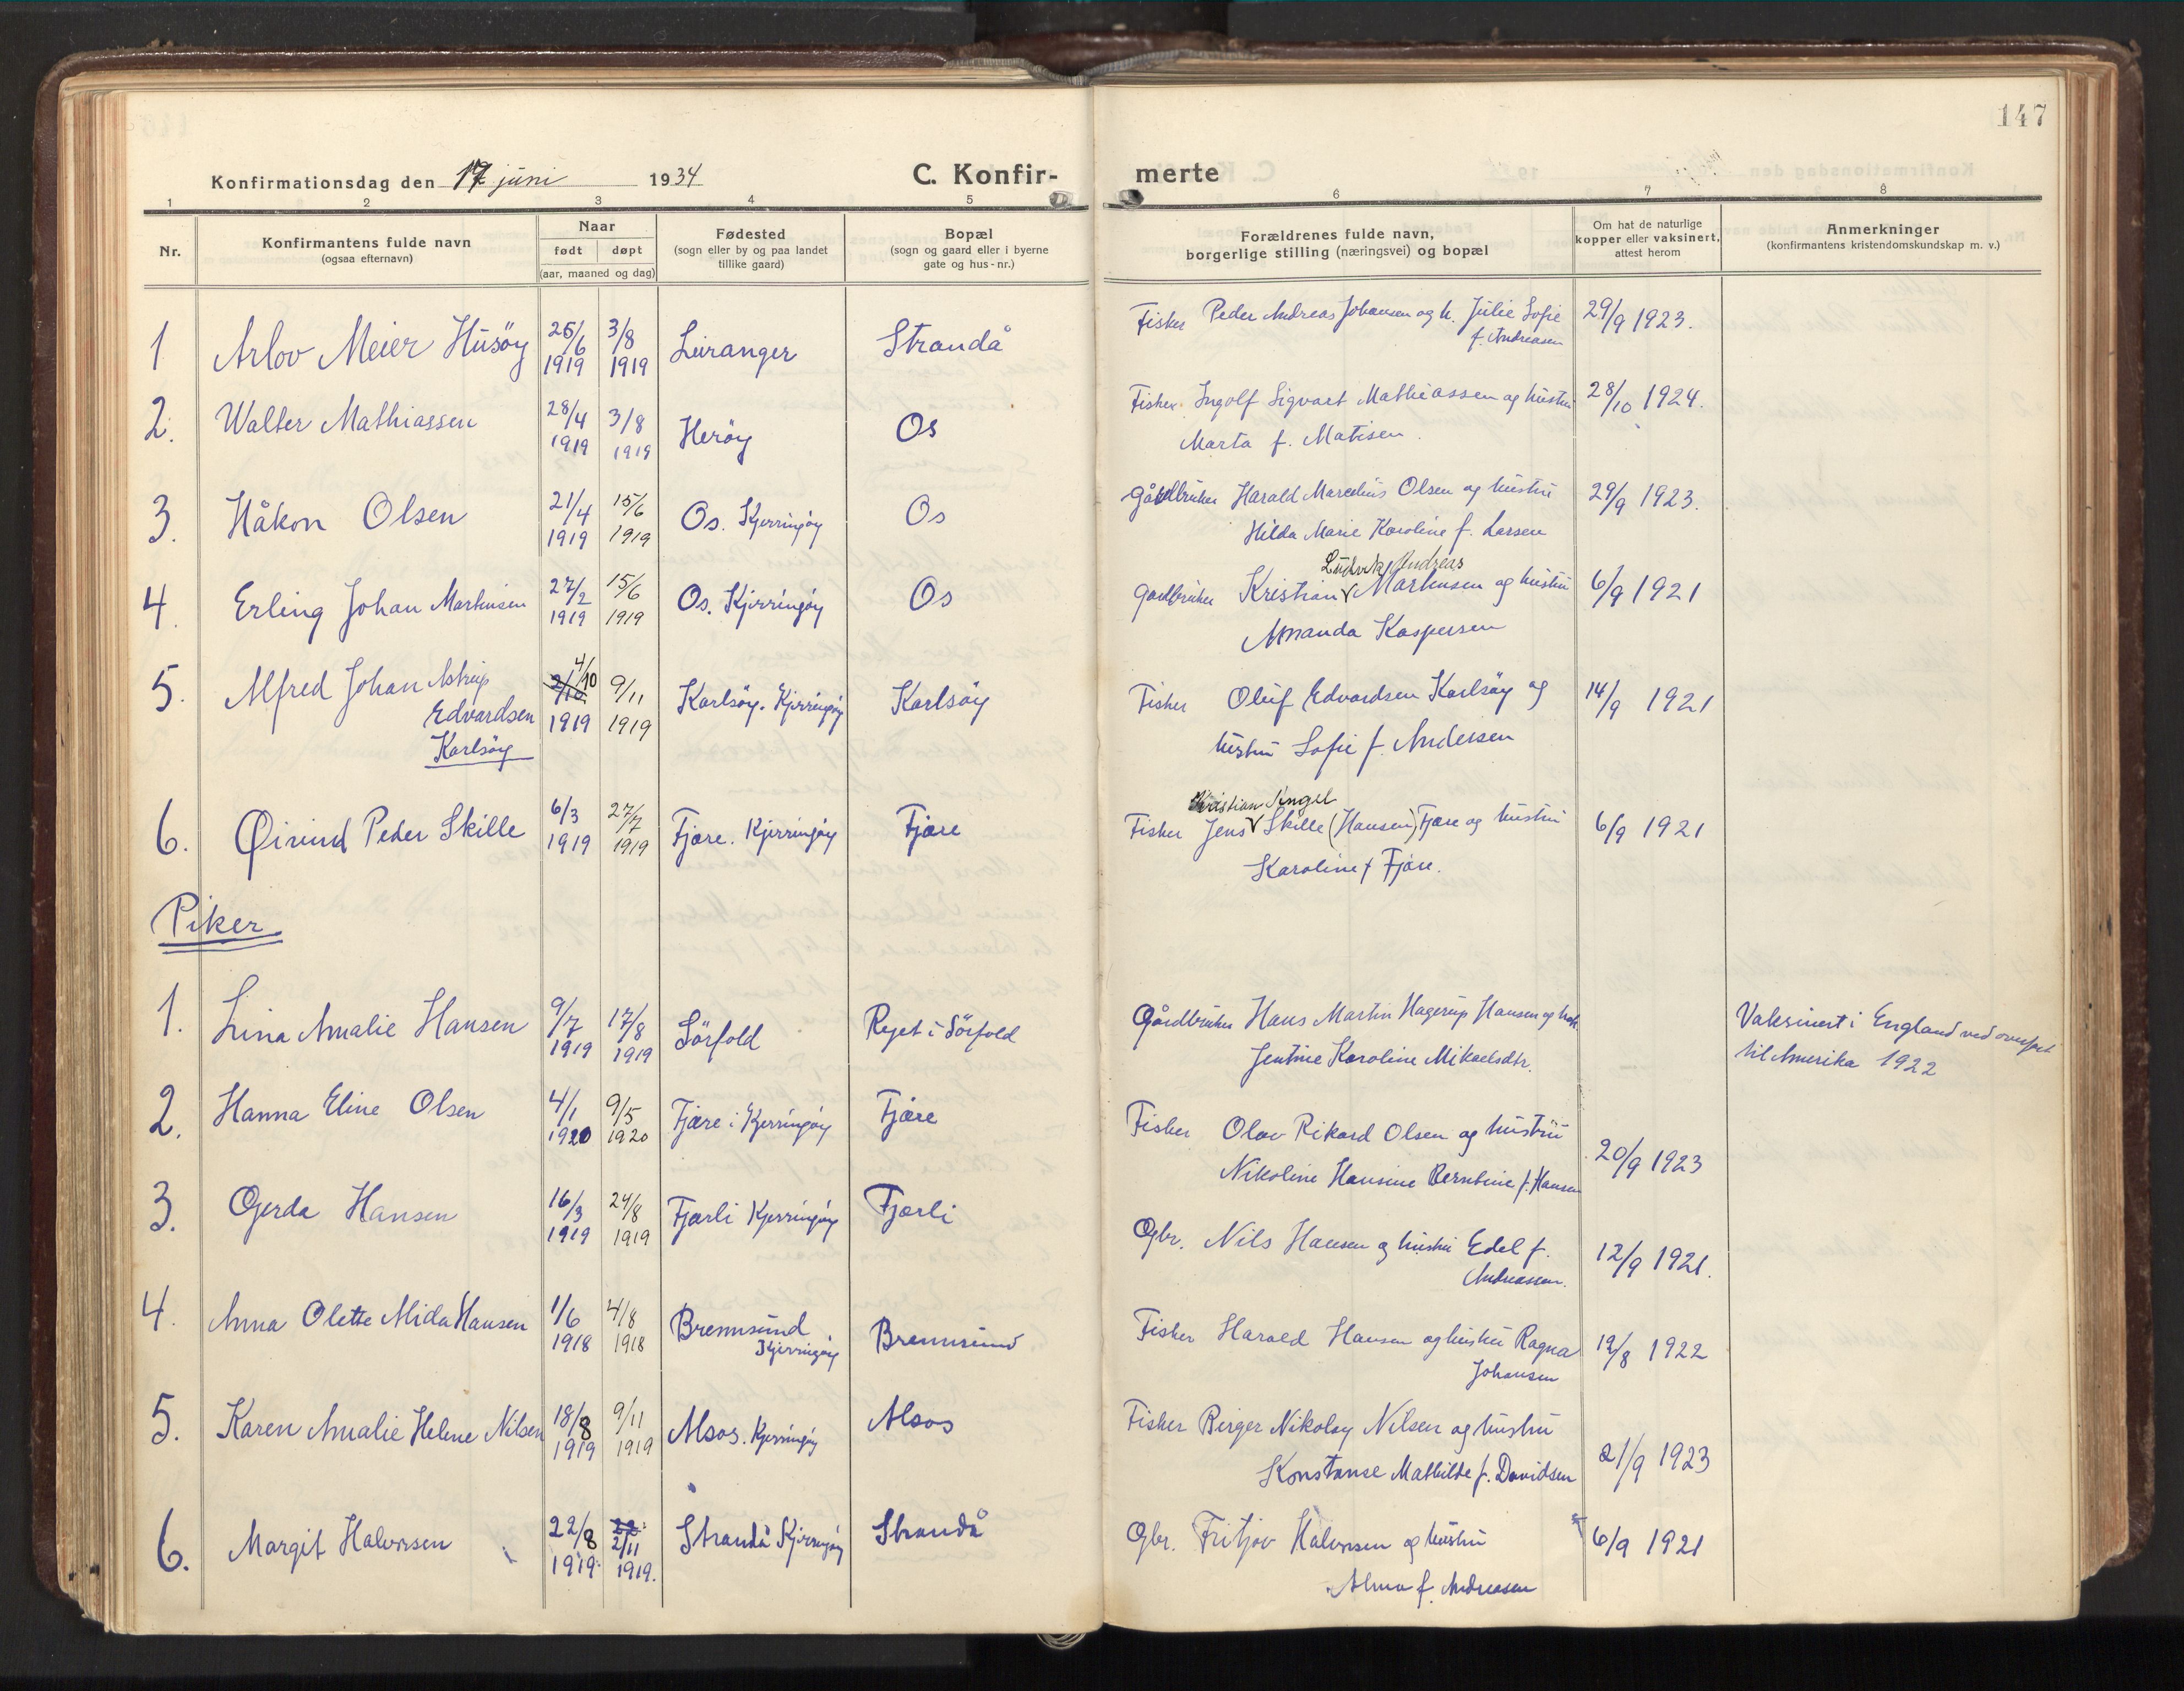 147
Konfirmationsdag den 17 juni 1934 C. Konfir- merte
1 2 3 4 5 6 7 8
Nr. Konfirmantens fulde navn (ogsaa efternavn) Naar født døpt (aar, maaned og dag) Fødested (sogn eller by og paa landet tillike gaard) Bopæl (sogn og gaard eller i byerne gate og hus-nr.) Forældrenes fulde navn, borgerlige stilling (næringsvei) og bopæl Om hat de naturlige kopper eller vaksinert, attest herom Anmerkninger (konfirmantens kristendomskundskap m. v.)
1 Arlov Meier Husöy 26/6 1919 3/8 1919 Leiranger Strandå Fisker Peder Andreas Johansen og h. Julie Sofie 29/9 1923.
f. Andreasen
2. Walter Mathiassen 28/4 1919 3/8 1919 Heröy Os Fisker Ingolf Sigvart Mathiassen og hustru 28/10 1924.
Marta f. Matisen.
3. Håkon Olsen 21/4 1919 15/6 1919 Os. Kjerringöy Os Gårdbruker Harald Marcelius Olsen og hustru 29/9 1923.
Hilda Marie Karoline f. Larsen
Ludvik Andreas
4. Erling Johan Martinsen 27/2 1919 15/6 1919 Os. Kjerringöy Os Gardbruker Kristian Martinsen og hustru 6/9 1921
Amanda Kaspersen
5. Alfred Johan Astrup 2/10 4/10 1919 9/11 1919 Karlsöy. Kjerringöy Karlsöy Fisker Oluf Edvardsen Karlsöy og 14/9 1921
Edvardsen hustru Sofie f. Andersen
Karlsöy
Kristian Angel
6. Øivind Peder Skille 6/3 1919 27/7 1919 Fjære. Kjerringöy Fjære Fisker Jens Skille (Hansen) Fjære og hustru 6/9 1921
Karoline f Fjære.
Piker
1. Lina Amalie Hansen 9/7 1919 17/8 1919 Sörfold Røset i Sörfold Gårdbruker Hans Martin Hagerup Hansen og Vaksinert i England ved overfart
Jentine Karoline Mikaelsdtr. til Amerika 1922
2. Hanna Eline Olsen 4/1 1920 9/5 1920 Fjære i Kjerringöy Fjære Fisker Olav Rikard Olsen og hustru 20/9 1923
Nikoline Hansine Berntine f. Hansen
3. Gjerda Hansen 16/3 1919 24/8 1919 Fjærli Kjerringöy Fjærli Gbr. Nils Hansen og hustru Edel f. 12/9 1921.
Andreassen.
4. Anna Olette Alida Hansen 1/6 1918 4/8 1918 Brennsund Kjerringöy Brennsund Fisker Harald Hansen og hustru Ragna 19/8 1922
Johansen
5. Karen Amalie Helene Nilsen 18/8 1919 9/11 1919 Alsos. Kjerringöy Alsos Fisker Birger Nikolay Nilsen og hustru 21/9 1923
Konstanse Mathilde f. Davidsen
6. Margit Halvorsen 22/8 1919. 2/11 1919. Strandå Kjerringöy Strandå Gbr. Fritjov Halvorsen og hustru 6/9 1921
Alma f. Andreasen